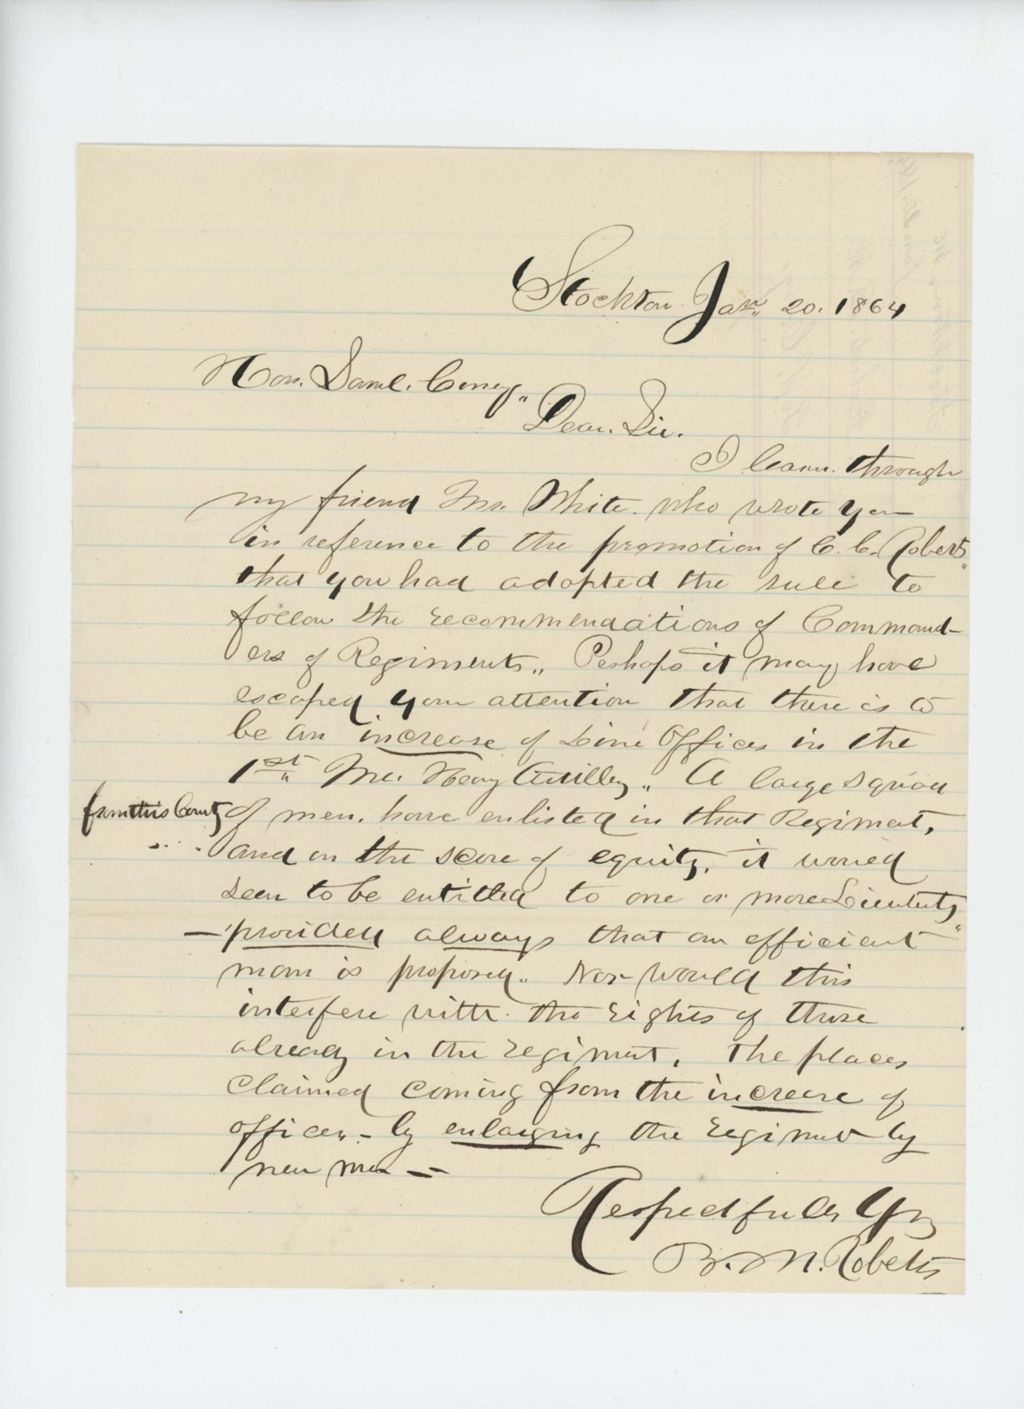 Stockton Jan. 20. 1864
Hon. Saml. Cony,,
Dear. Sir.
I learn. through
my friend Mr. White. who wrote you
in reference to the promotion of C. C. Roberts,,
that you had adopted the rule to
follow the recommendations of Command-
ers of Regiments,, Perhaps it may have
escaped your attention that there is to
be an increase of Line Officers in the
1st,, Me. Heavy Artillery,, A large squad
from this County
of men. have enlisted in that Regiment,
and on the score of equity, it would
seem to be entitled to one or more Lieutents,,
— provided always that an efficient
man is proposed,, Nor would this
interfere with. the rights of those
already in the regiment, The places
claimed coming from the increase of
officers,, - by enlarging the regiment by
new men —
Respectfully Yrs
B. M. Roberts